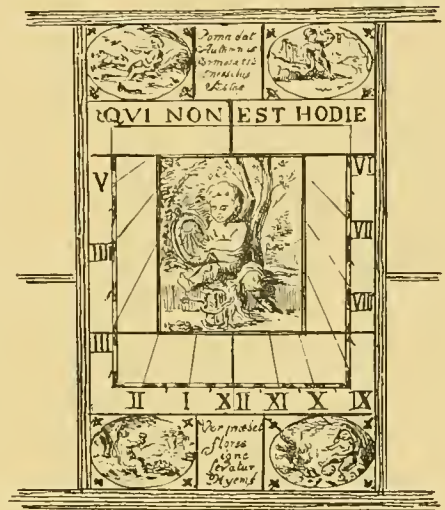 Poma dat
Autumnus
formosa est
messibus
Æstas
QVI NON EST HODIE
V VI
IIII VII
III VII
II I XII XI X IX
Ver præbet
flores
igne
levatur
Hyems